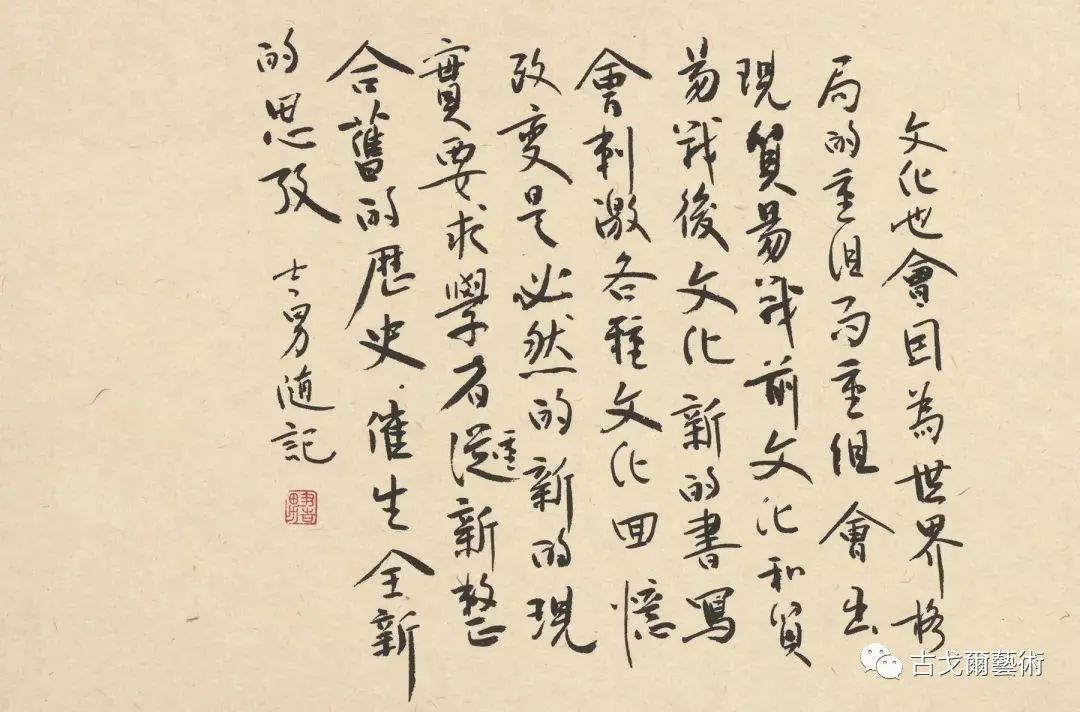 文化也會因為世界格
局的重組局重組會出
現貿易戰前文化和貿
易戰後文化新的書寫
會刺激各種文化回憶
改变是必然的新的現
實要求學者從重新整
合舊的歷史催生全新
的思攷
男随記
古戈爾藝術